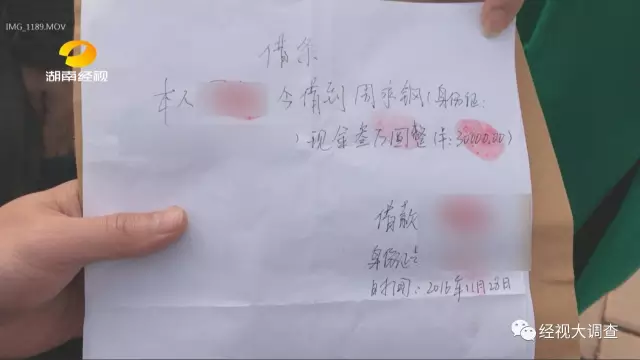 IMG_1189.MOV
湖南经视
借条
本人 今借到周 (身份证:
)现金叁万圆整(¥:30000.00)
借款
身份证:
日期:2016年11月28日
经视大调查